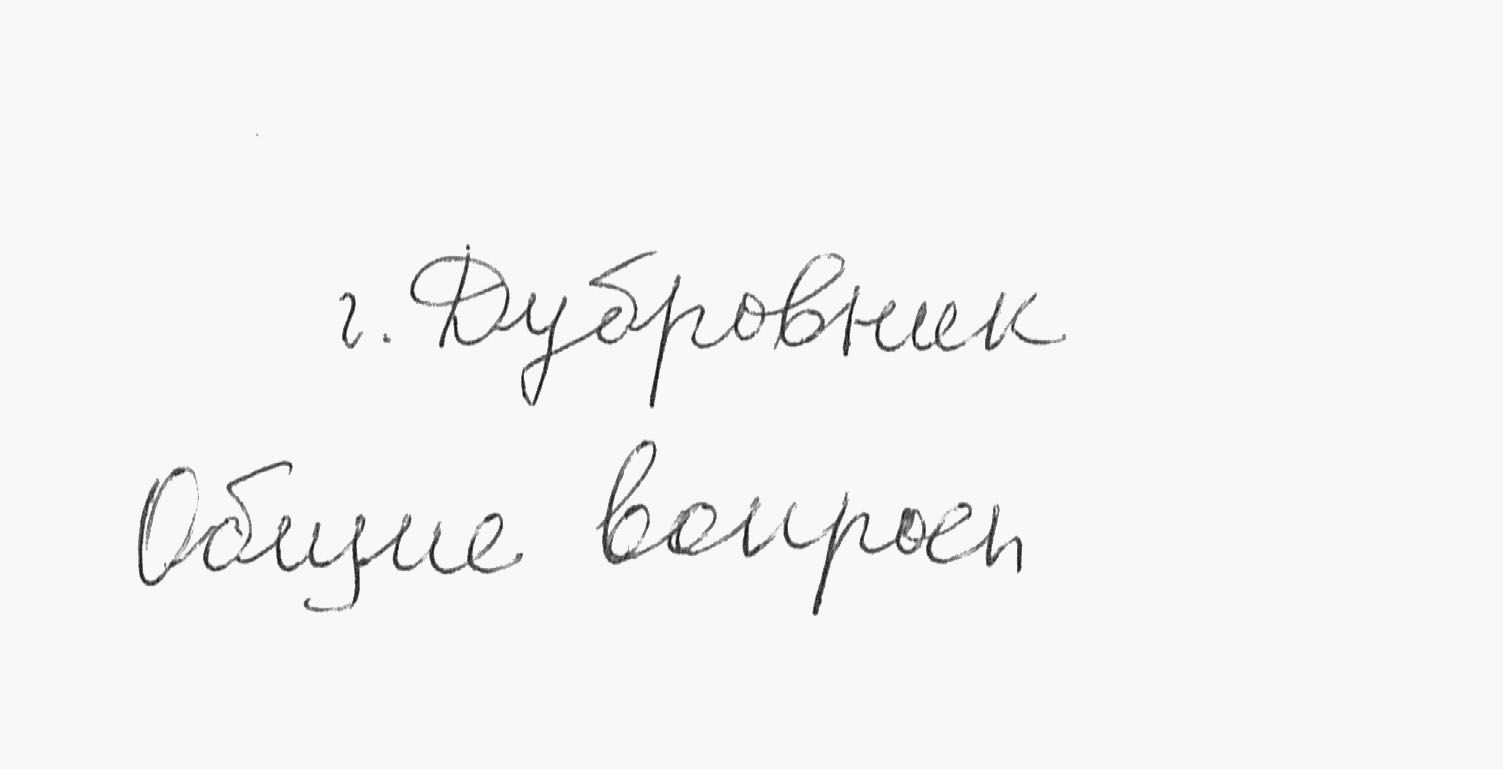 г. Дубровник
Общие вопросы